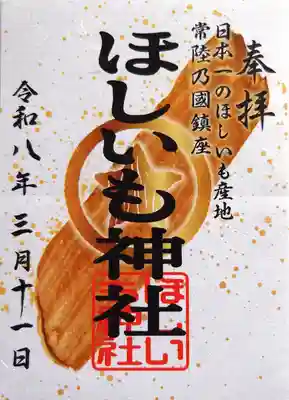 奉拝
日本一のほしいも産地
常陸乃國鎮座
ほしいも神社
令和八年 三月十一日